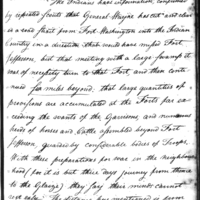 The Indians have information, confirmed
by repeated scouts that General Wayne has cut and cleared
a road strait from Fort Washington into the Indian
Country in a direction that would have miss'd Fort
Jefferson, but that meeting with a large swamp it
was of necessity turn'd to that Fort and then conti
nued six miles beyond, that large quantities of
provisions are accumulated at the Forts far ex
ceeding the wants of the Garrisons, and numerous
herds of horses and Cattle assembled beyond Fort
Jefferson, guarded by considerable bodies of Troops.
With these preparations for war in the neighbour
hood (for it is but three days journey from thence
to the Glaize) they say their minds cannot